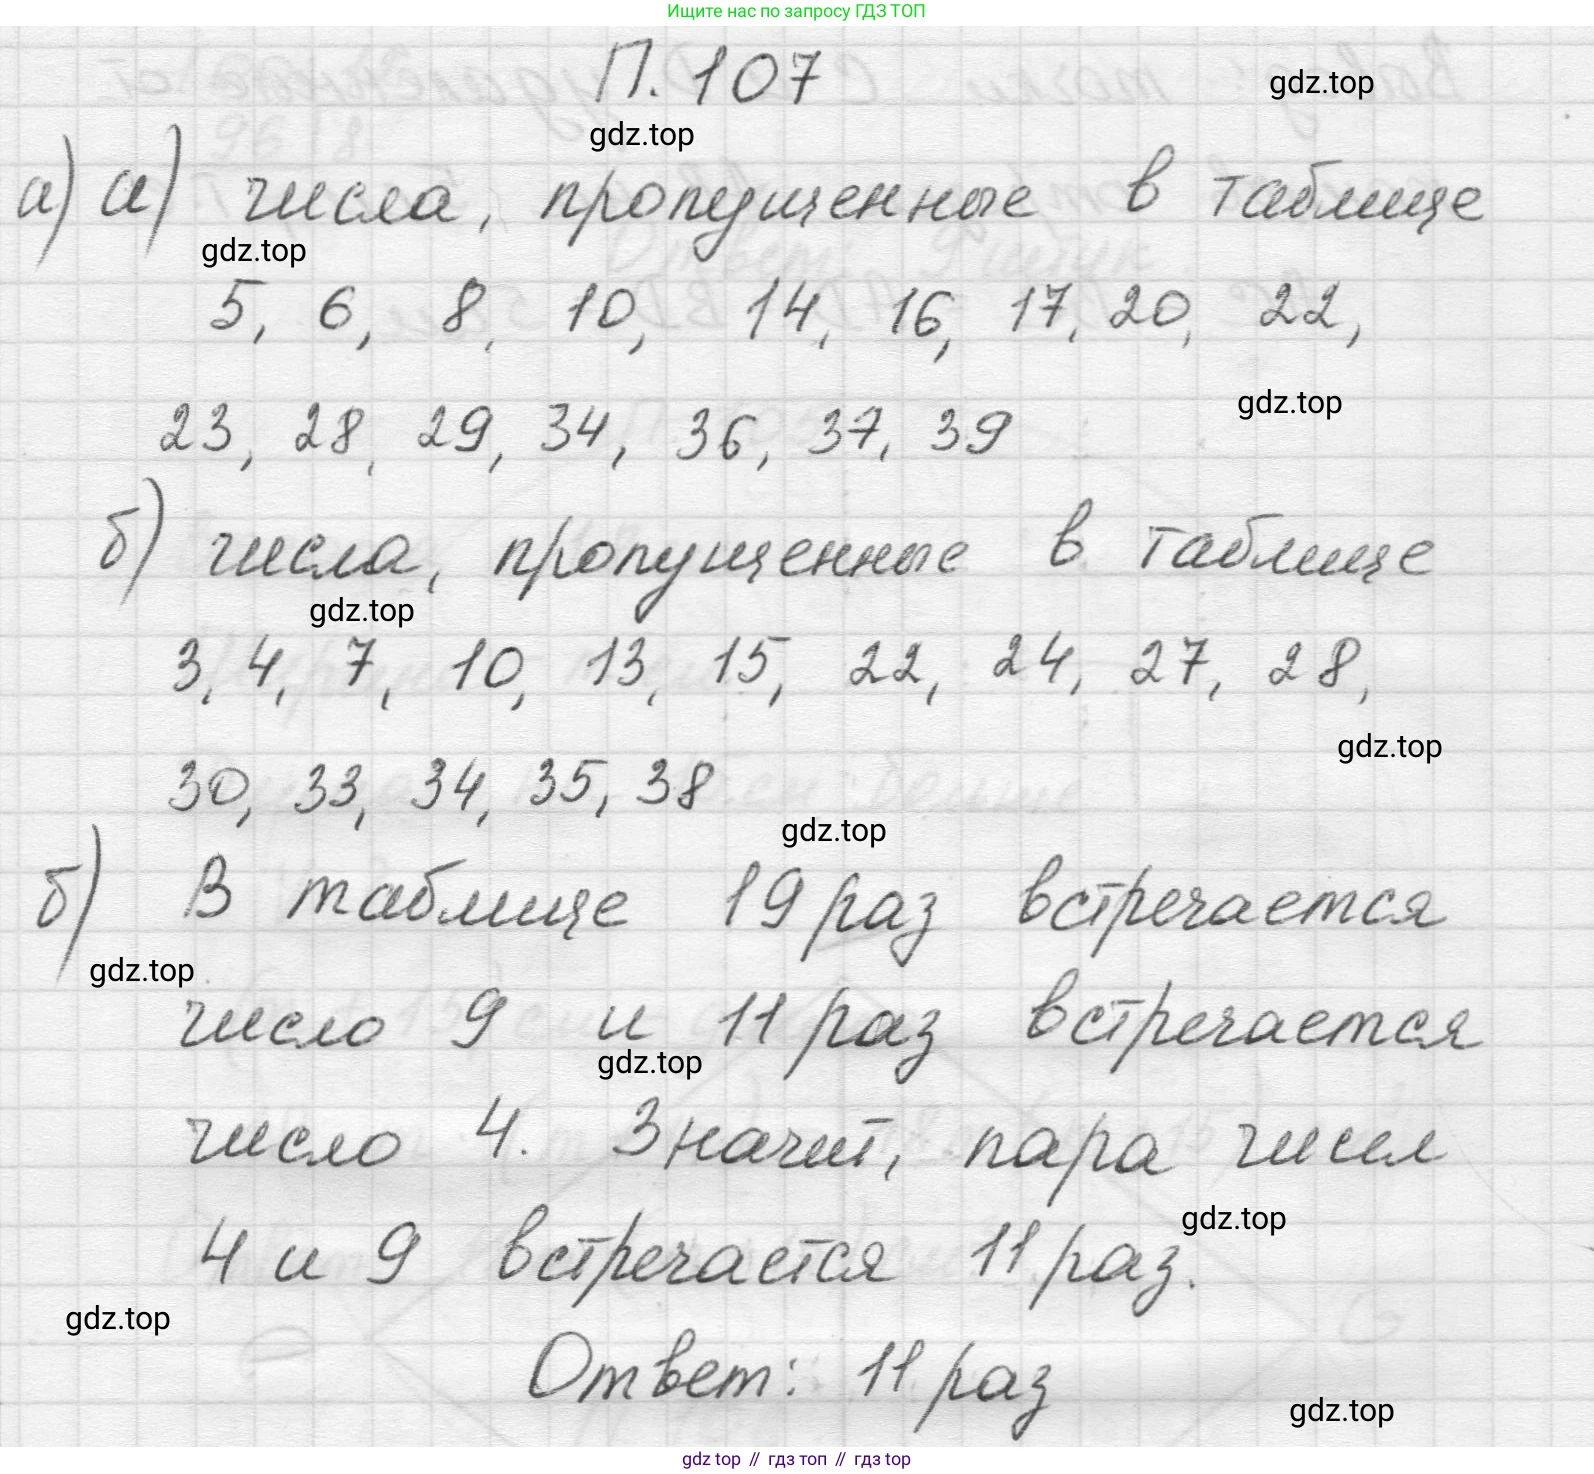 Ищите нас по запросу ГДЗ ТОП
П. 107
gdz.top
gdz.top
а) а) числа, пропущенные в таблице
gdz.top
5, 6, 8, 10, 14, 16, 17, 20, 22,
gdz.top
23, 28, 29, 34, 36, 37, 39
б) числа, пропущенные в таблице
gdz.top
3, 4, 7, 10, 13, 15, 22, 24, 27, 28,
gdz.top
30, 33, 34, 35, 38
gdz.top
б) В таблице 19 раз встречается
gdz.top
число 9 и 11 раз встречается
gdz.top
число 4. Значит, пара чисел
gdz.top
4 и 9 встречается 11 раз.
gdz.top
Ответ: 11 раз
gdz.top
gdz top // гдз топ // гдз top